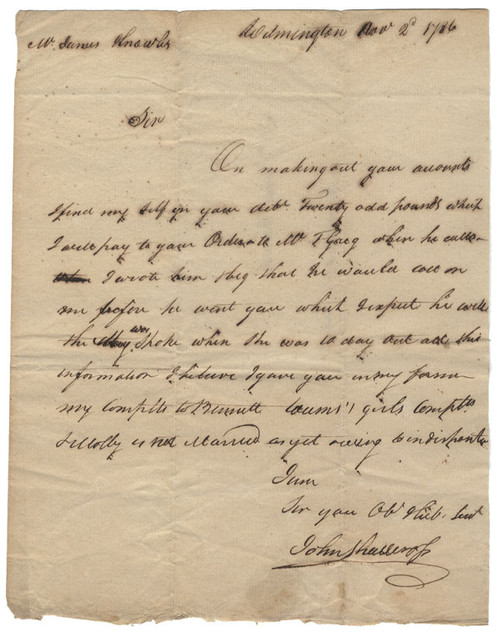 Wilmington Nov 2d 1786
Mr. James Knowles
Sir
On making out your accounts
I find my self in your debt. Twenty odd pounds which
I will pay to your Order to Mr when he calls
I wrote him & beg that he would call on
me before he went you which I expect he will
the was Spoke when She was 10 day out all this
information I believe I gave you in my former
my Complts to Bennett girls Complts
& Molly is not Married as yet owing to
I am
Sir your Obt Hub. Servt
John Shallcross